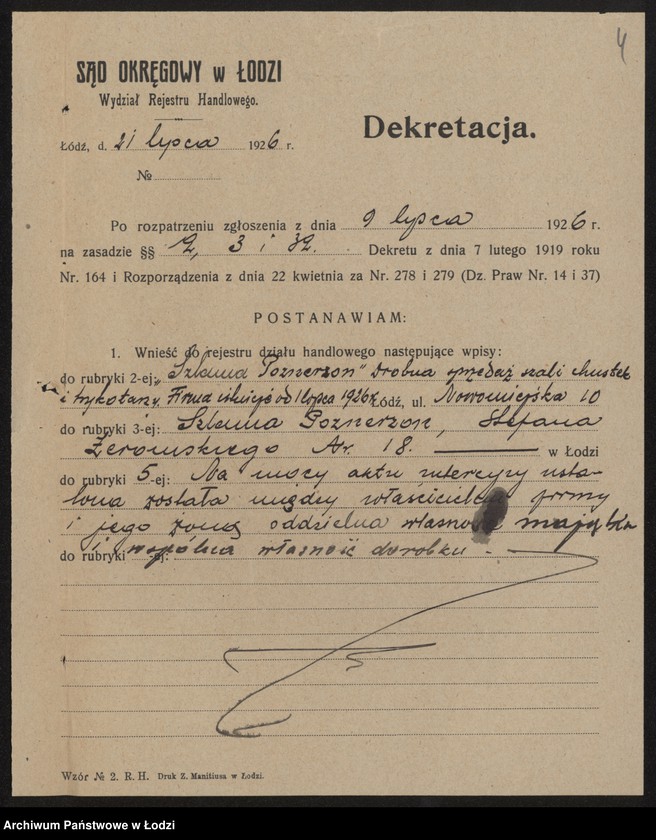 4
SĄD OKRĘGOWY w ŁODZI
Wydział Rejestru Handlowego.
Dekretacja.
Łódź, d. 21 lipca 1926 r.
№
Po rozpatrzeniu zgłoszenia z dnia 9 lipca 1926 r.
na zasadzie §§ 2, 3 i 32. Dekretu z dnia 7 lutego 1919 roku
Nr. 164 i Rozporządzenia z dnia 22 kwietnia za Nr. 278 i 279 (Dz. Praw Nr. 14 i 37)
POSTANAWIAM:
1. Wnieść do rejestru działu handlowego następujące wpisy:
do rubryki 2-ej: „Szlama Poznerzon" Drobna sprzedaż szali chustek
i trykotaży. Firma istnieje od 1 lipca 1926 r. Łódź, ul. Nowomiejska 10
do rubryki 3-ej: Szlama Poznerzon, Stefana
Żeromskiego Nr. 18. w Łodzi
do rubryki 5-ej: Na mocy aktu intercyzy usta-
lona została między właścicielem firmy
i jego żoną oddzielna własność majątku
do rubryki -ej: i wspólna własność dorobku.
Wzór № 2. R. H. Druk Z. Manitiusa w Łodzi.
Archiwum Państwowe w Łodzi